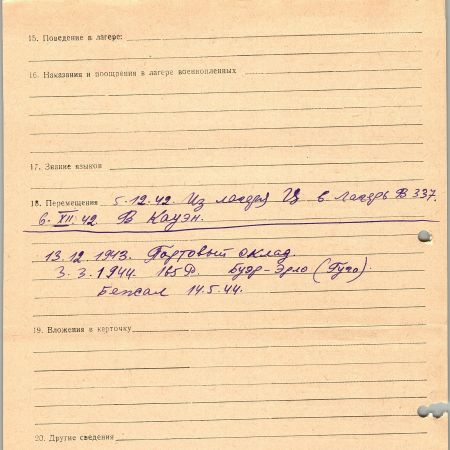 15. Поведение в лагере:
16. Наказания и поощрения в лагере военнопленных
17. Знание языков
18. Перемещения 5.12.42. Из лагеря Ц в лагерь В 337.
6.XII.42 В Кауэн.
13.12.1943. Портовый склад.
3.3.1944. 165 Ф. Буэр-Эрло (Гуго).
Бежал 14.5.44.
19. Вложения в карточку
20. Другие сведения